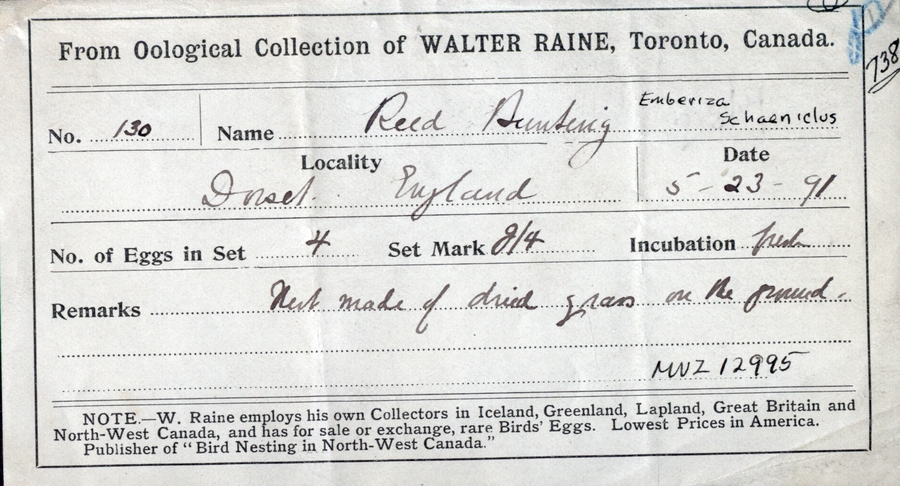 From Oological Collection of WALTER RAINE, Toronto, Canada.
738
No. 130 Name Reed Bunting Emberiza Schaeniclus
Locality Date
Dorset. England 5-23-91
No. of Eggs in Set 4 Set Mark 2/4 Incubation fresh
Remarks Nest made of dried grass on the ground.
MVZ 12995
NOTE.—W. Raine employs his own Collectors in Iceland, Greenland, Lapland, Great Britain and
North-West Canada, and has for sale or exchange, rare Birds' Eggs. Lowest Prices in America.
Publisher of "Bird Nesting in North-West Canada."